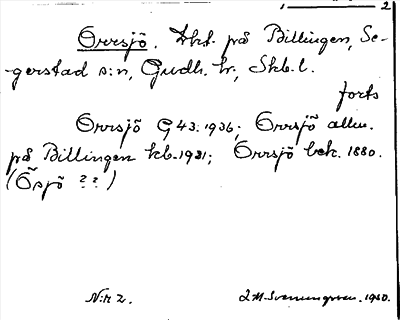 2
Orrsjö. Trkt. på Billingen, Se-
gerstad s:n, Gudh. hr., Skb. l.
forts
Orrsjö G 43. 1936; Orrsjö allm.
på Billingen kb. 1921; Orrsjö bek. 1880.
(Ösjö ??)
N:r 2. I.M. Svenungsson. 1960.